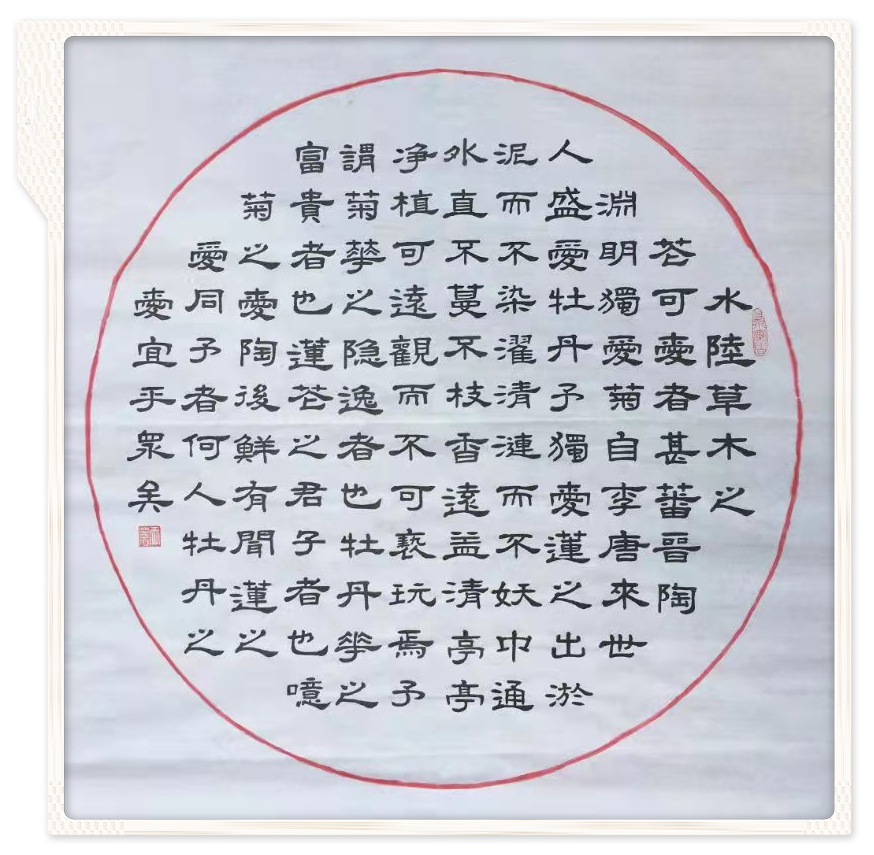 水陸草木之
花可愛者甚蕃晉陶
淵明獨愛菊自李唐來世
人盛愛牡丹予獨愛蓮之出淤
泥而不染濯清漣而不妖中通
外直不蔓不枝香遠益清亭亭
净植可遠觀而不可褻玩焉予
謂菊華之隐逸者也牡丹華之
富貴者也蓮花之君子者也噫
菊之愛陶後鮮有聞蓮之
愛同予者何人牡丹之
愛宜乎眾矣